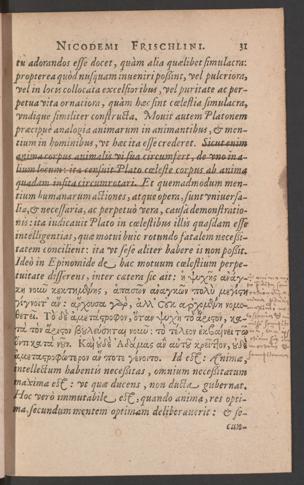 NICODEMI FRISCHLINI. 31
tù adorandos esse docet, quàm alia quælibet simulacra:
propterea quòd nusquam inveniri possint, vel pulcriora,
vel in locis collocata excelsioribus, vel puritate ac per-
petua vita ornatiora, quàm hæc sint cœlestia simulacra,
undique similiter constructa. Movit autem Platonem
præcipuè analogia animarum in animantibus, & men-
tium in hominibus, ut hæc ita esse crederet. Sicut enim
anima corpus animalis vi sua circumfert, de uno in a-
lium locum: ita censuit Plato cœleste corpus ab anima
quadam insita circumrotari. Et quemadmodum men-
tium humanarum actiones, atque opera, sunt universa-
lia, & necessaria, ac perpetuò vera, causa demonstratio-
nis: ita iudicavit Plato in cœlestibus illis quasdam esse
intelligentias, quæ motui huic rotundo fatalem necessi-
tatem concilient: ita ut sese aliter habere is non possit.
Ideò in Epinomide de hac motuum cœlestium perpe-
tuitate disserens, inter cætera sic ait: ἡ ψυχῆς ἀνάγ-
κη νοῦν κεκτημένης, ἁπασῶν ἀναγκῶν πολὺ μεγίστη
γίγνοιτ' ἄν: ἄρχουσα γὰρ, ἀλλ' οὐκ ἀρχομένη νομο-
θετεῖ. Τὸ δὲ ἀμετάστροφον, ὅταν ψυχὴ τὸ ἄριστον, κα-
τὰ τὸν ἄριστον βουλεύσηται νοῦν: τὸ τέλεον ἐκβαίνει τῷ
ὄντι κατὰ νοῦν. Καὶ οὐδὲ Ἀδάμας ἂν αὐτοῦ κρεῖττον, οὐδὲ
ἀμεταστροφώτερον ἄν ποτε γένοιτο. Id est: Anima,
intellectum habentis necessitas, omnium necessitatum
maxima est: ut quæ ducens, non ducta gubernat.
Hoc verò immutabile est, quando anima, res opti-
ma, secundum mentem optimam deliberaverit: & se-
cun-